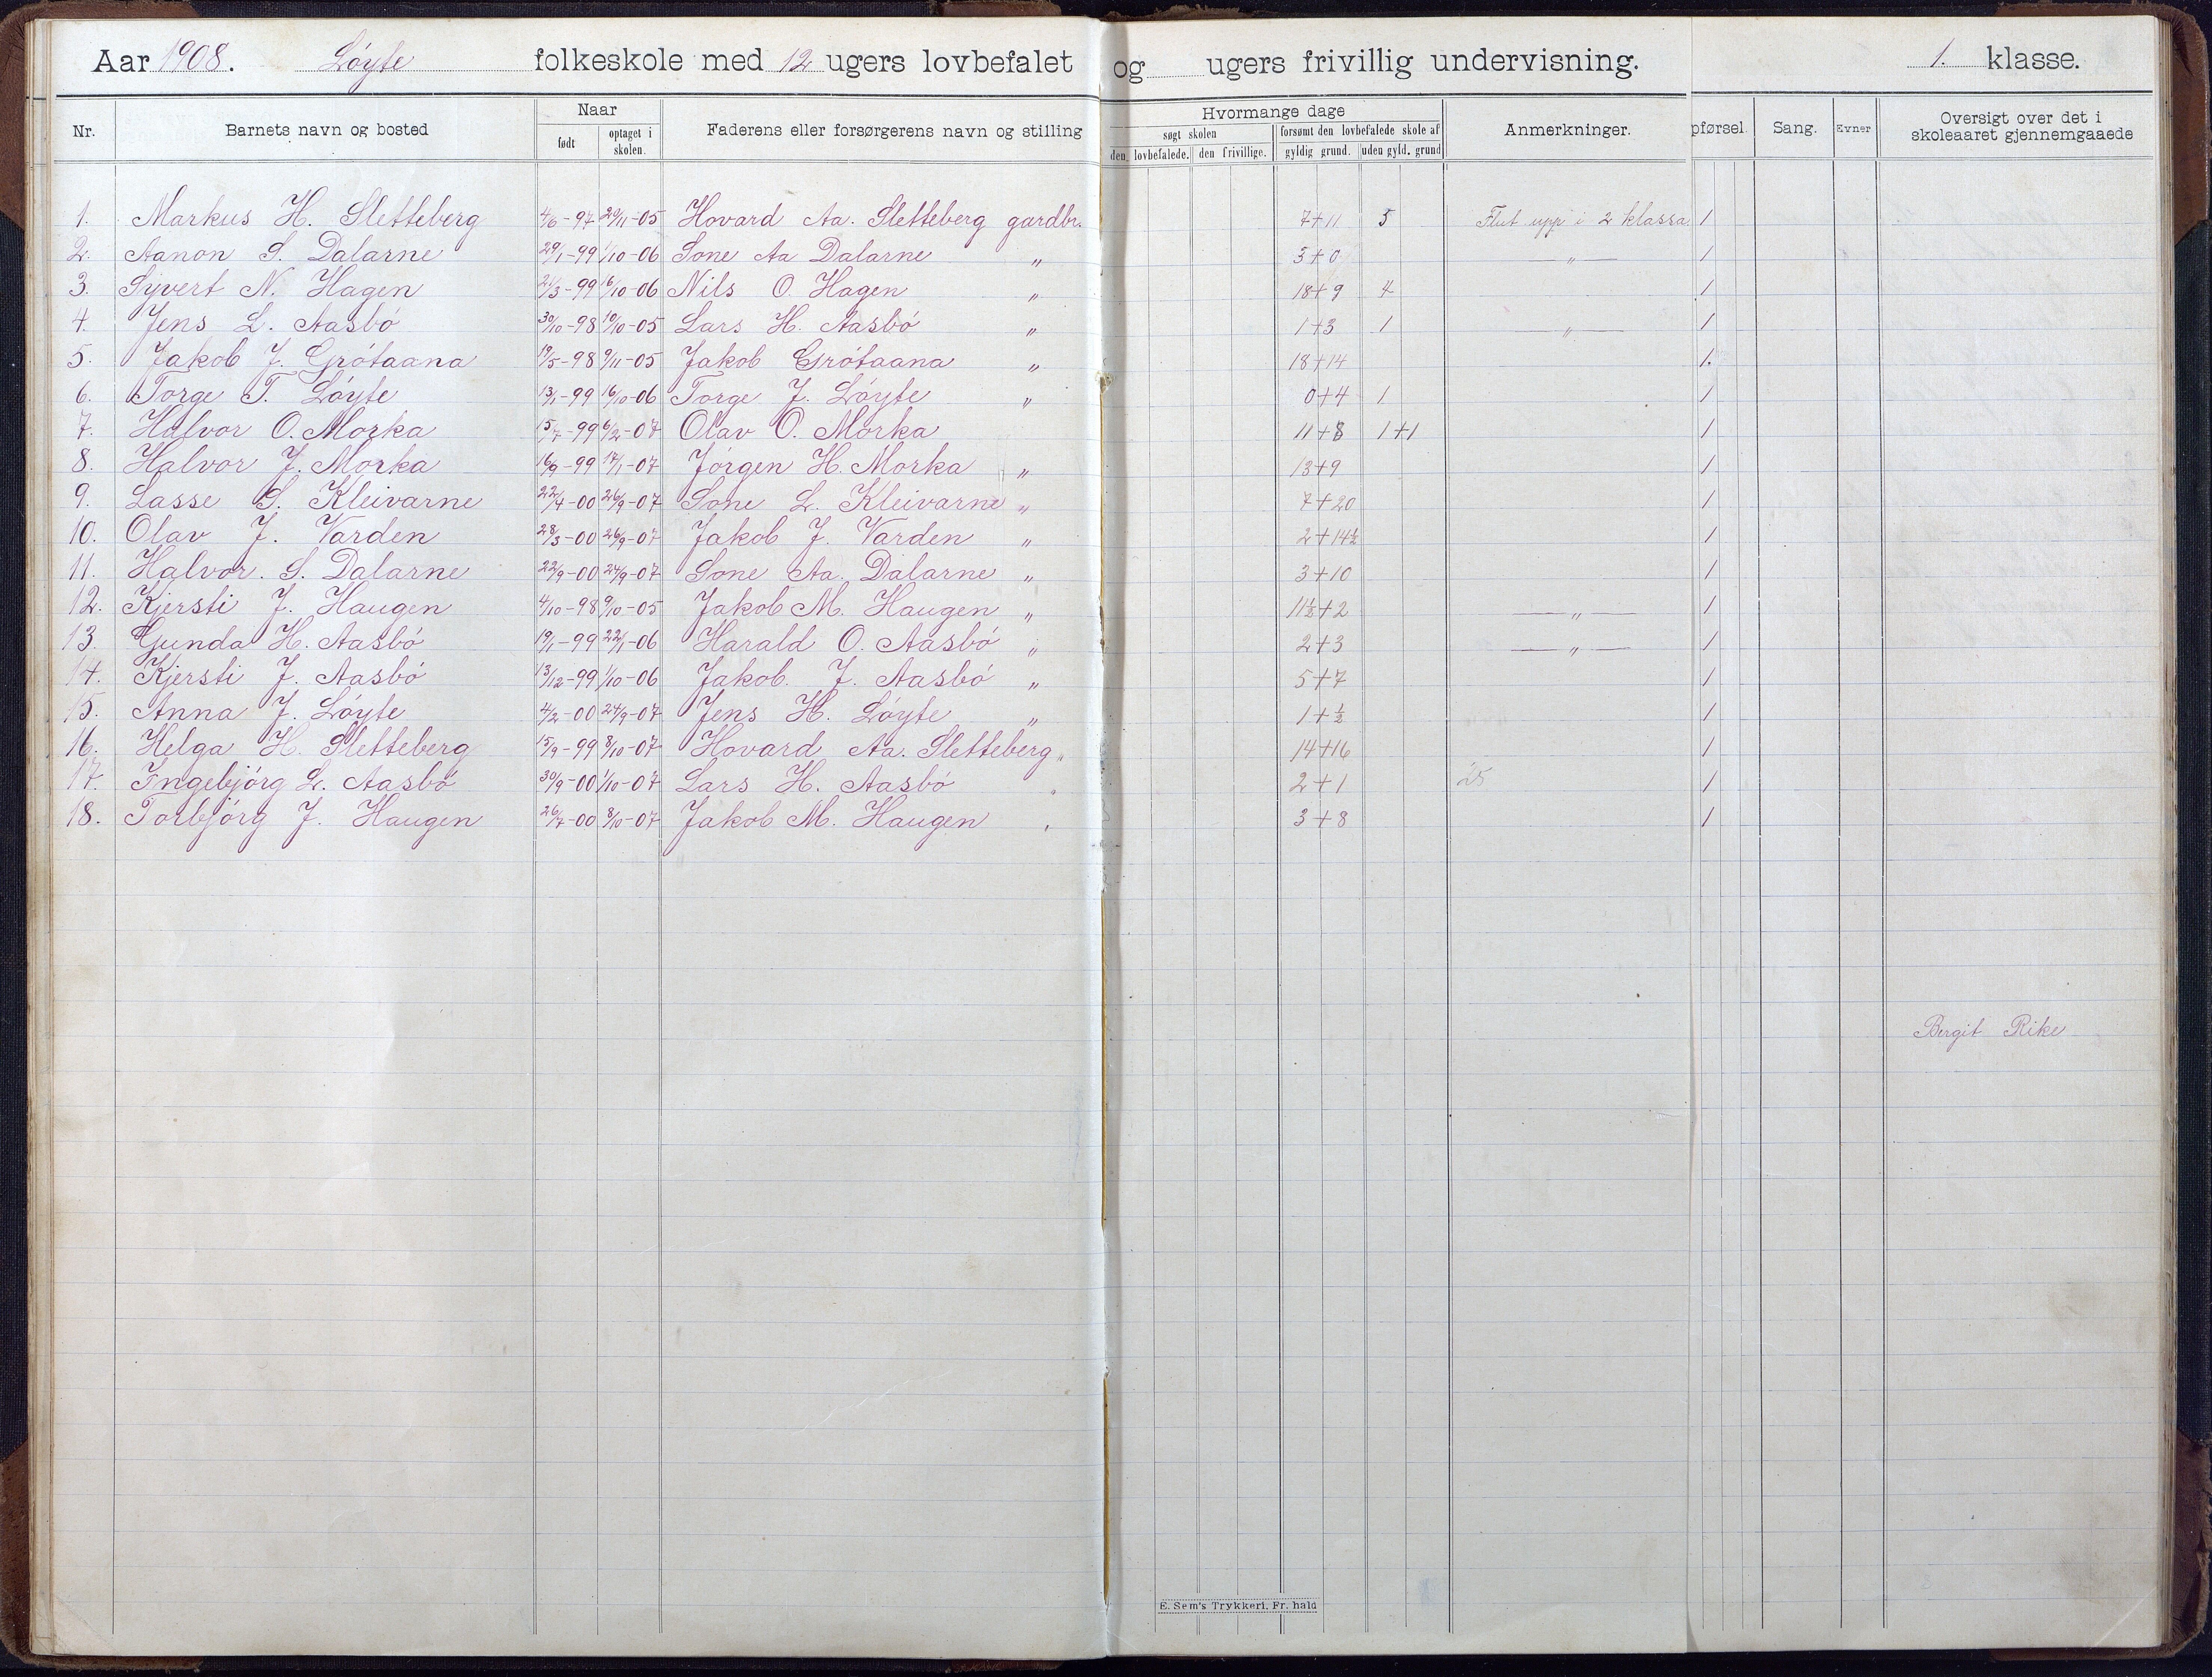 Aar 1908. Löyte folkeskole med 12 ugers lovbefalet og ugers frivillig undervisning. 1. klasse.
Nr. Barnets navn og bosted Naar født optaget i skolen. Faderens eller forsørgerens navn og stilling Hvormange dage søgt skolen den lovbefalede. den frivillige. forsømt den lovbefalede skole af gyldig grund. uden gyld. grund Anmerkninger. pførsel. Sang. Evner Oversigt over det i skoleaaret gjennemgaaede
1. Markus H. Sletteberg 4/6-97 20/11-05 Hovard Aa. Sletteberg gardbr. 7+11 5 Flut upp i 2 klassa 1
2. Aanon S. Dalarne 29/1-99 1/10-06 Sone Aa Dalarne „ 3+0 — „ — 1
3. Syvert N. Hagen 21/3-99 16/10-06 Nils O. Hagen „ 18+9 4 1
4. Jens L. Aasbö 30/10-98 10/10-05 Lars H. Aasbö „ 1+3 1 — „ — 1
5. Jakob J. Grötaana 19/5-98 9/11-05 Jakob Grötaana „ 18+14 1.
6. Torge T. Löyte 13/1-99 16/10-06 Torge J. Löyte „ 0+4 1 1
7. Halvor O. Morka 15/7-99 6/2-07 Olav O. Morka 11+8 1+1 1
8. Halvor J. Morka 16/9-99 17/1-07 Jörgen H. Morka „ 13+9 1
9. Lasse S. Kleivarne 22/4-00 26/9-07 Sone L. Kleivarne „ 7+20 1
10. Olav J. Varden 28/3-00 26/9-07 Jakob J. Varden „ 2+14½ 1
11. Halvor. S. Dalarne 22/9-00 24/9-07 Sone Aa. Dalarne „ 3+10 1
12. Kjersti J. Haugen 4/10-98 9/10-05 Jakob M. Haugen „ 11½+2 — „ — 1
13. Gunda H. Aasbö 19/1-99 22/1-06 Harald O. Aasbö „ 2+3 — „ — 1
14. Kjersti J. Aasbö 13/12-99 1/10-06 Jakob. J. Aasbö „ 5+7 1
15. Anna J. Löyte 4/2-00 24/9-07 Jens H. Löyte „ 1+½ 1
16. Helga H. Sletteberg 15/9-99 8/10-07 Hovard Aa. Sletteberg „ 14+16 1
17. Ingebjörg L. Aasbö 30/9-00 1/10-07 Lars H. Aasbö „ 2+1 25 1
18. Torbjörg J. Haugen 26/7-00 8/10-07 Jakob M. Haugen „ 3+8 1
Bergit Rike
E. Sem's Trykkeri, Fr. hald